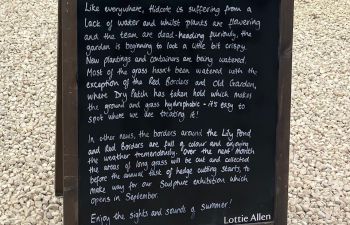 Like everywhere, Hidcote is suffering from a
lack of water and whilst plants are flowering
and the team are dead-heading furiously, the
garden is beginning to look a little bit crispy.
New plantings and containers are being watered.
Most of the grass hasn't been watered with the
exception of the Red Borders and Old Garden,
where Dry Patch has taken hold which makes
the ground and grass hydrophobic - it's easy to
spot where we are treating it!
In other news, the borders around the Lily Pond
and Red Borders are full of colour and enjoying
the weather tremendously. Over the next month
the areas of long grass will be cut and collected
before the annual task of hedge cutting starts, to
make way for our Sculpture exhibition which
opens in September.
Enjoy the sights and sounds of summer!
Lottie Allen